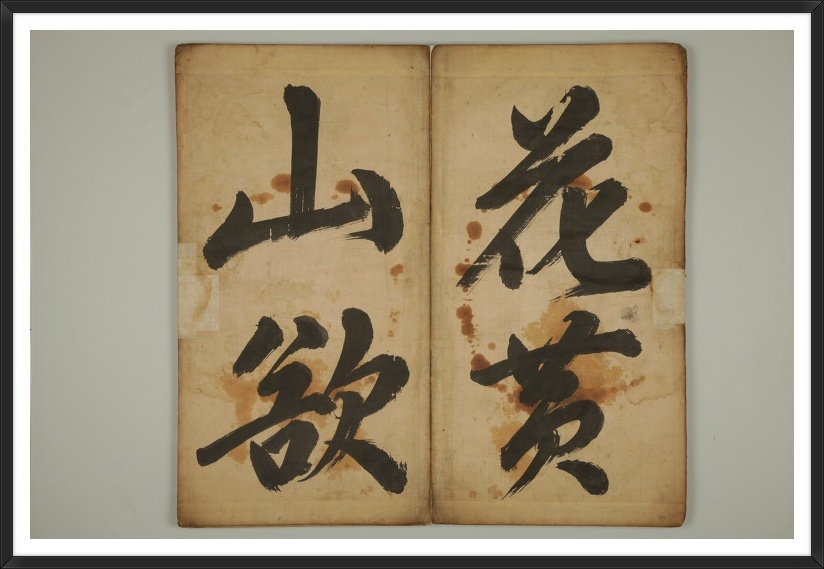 花黄
山欲